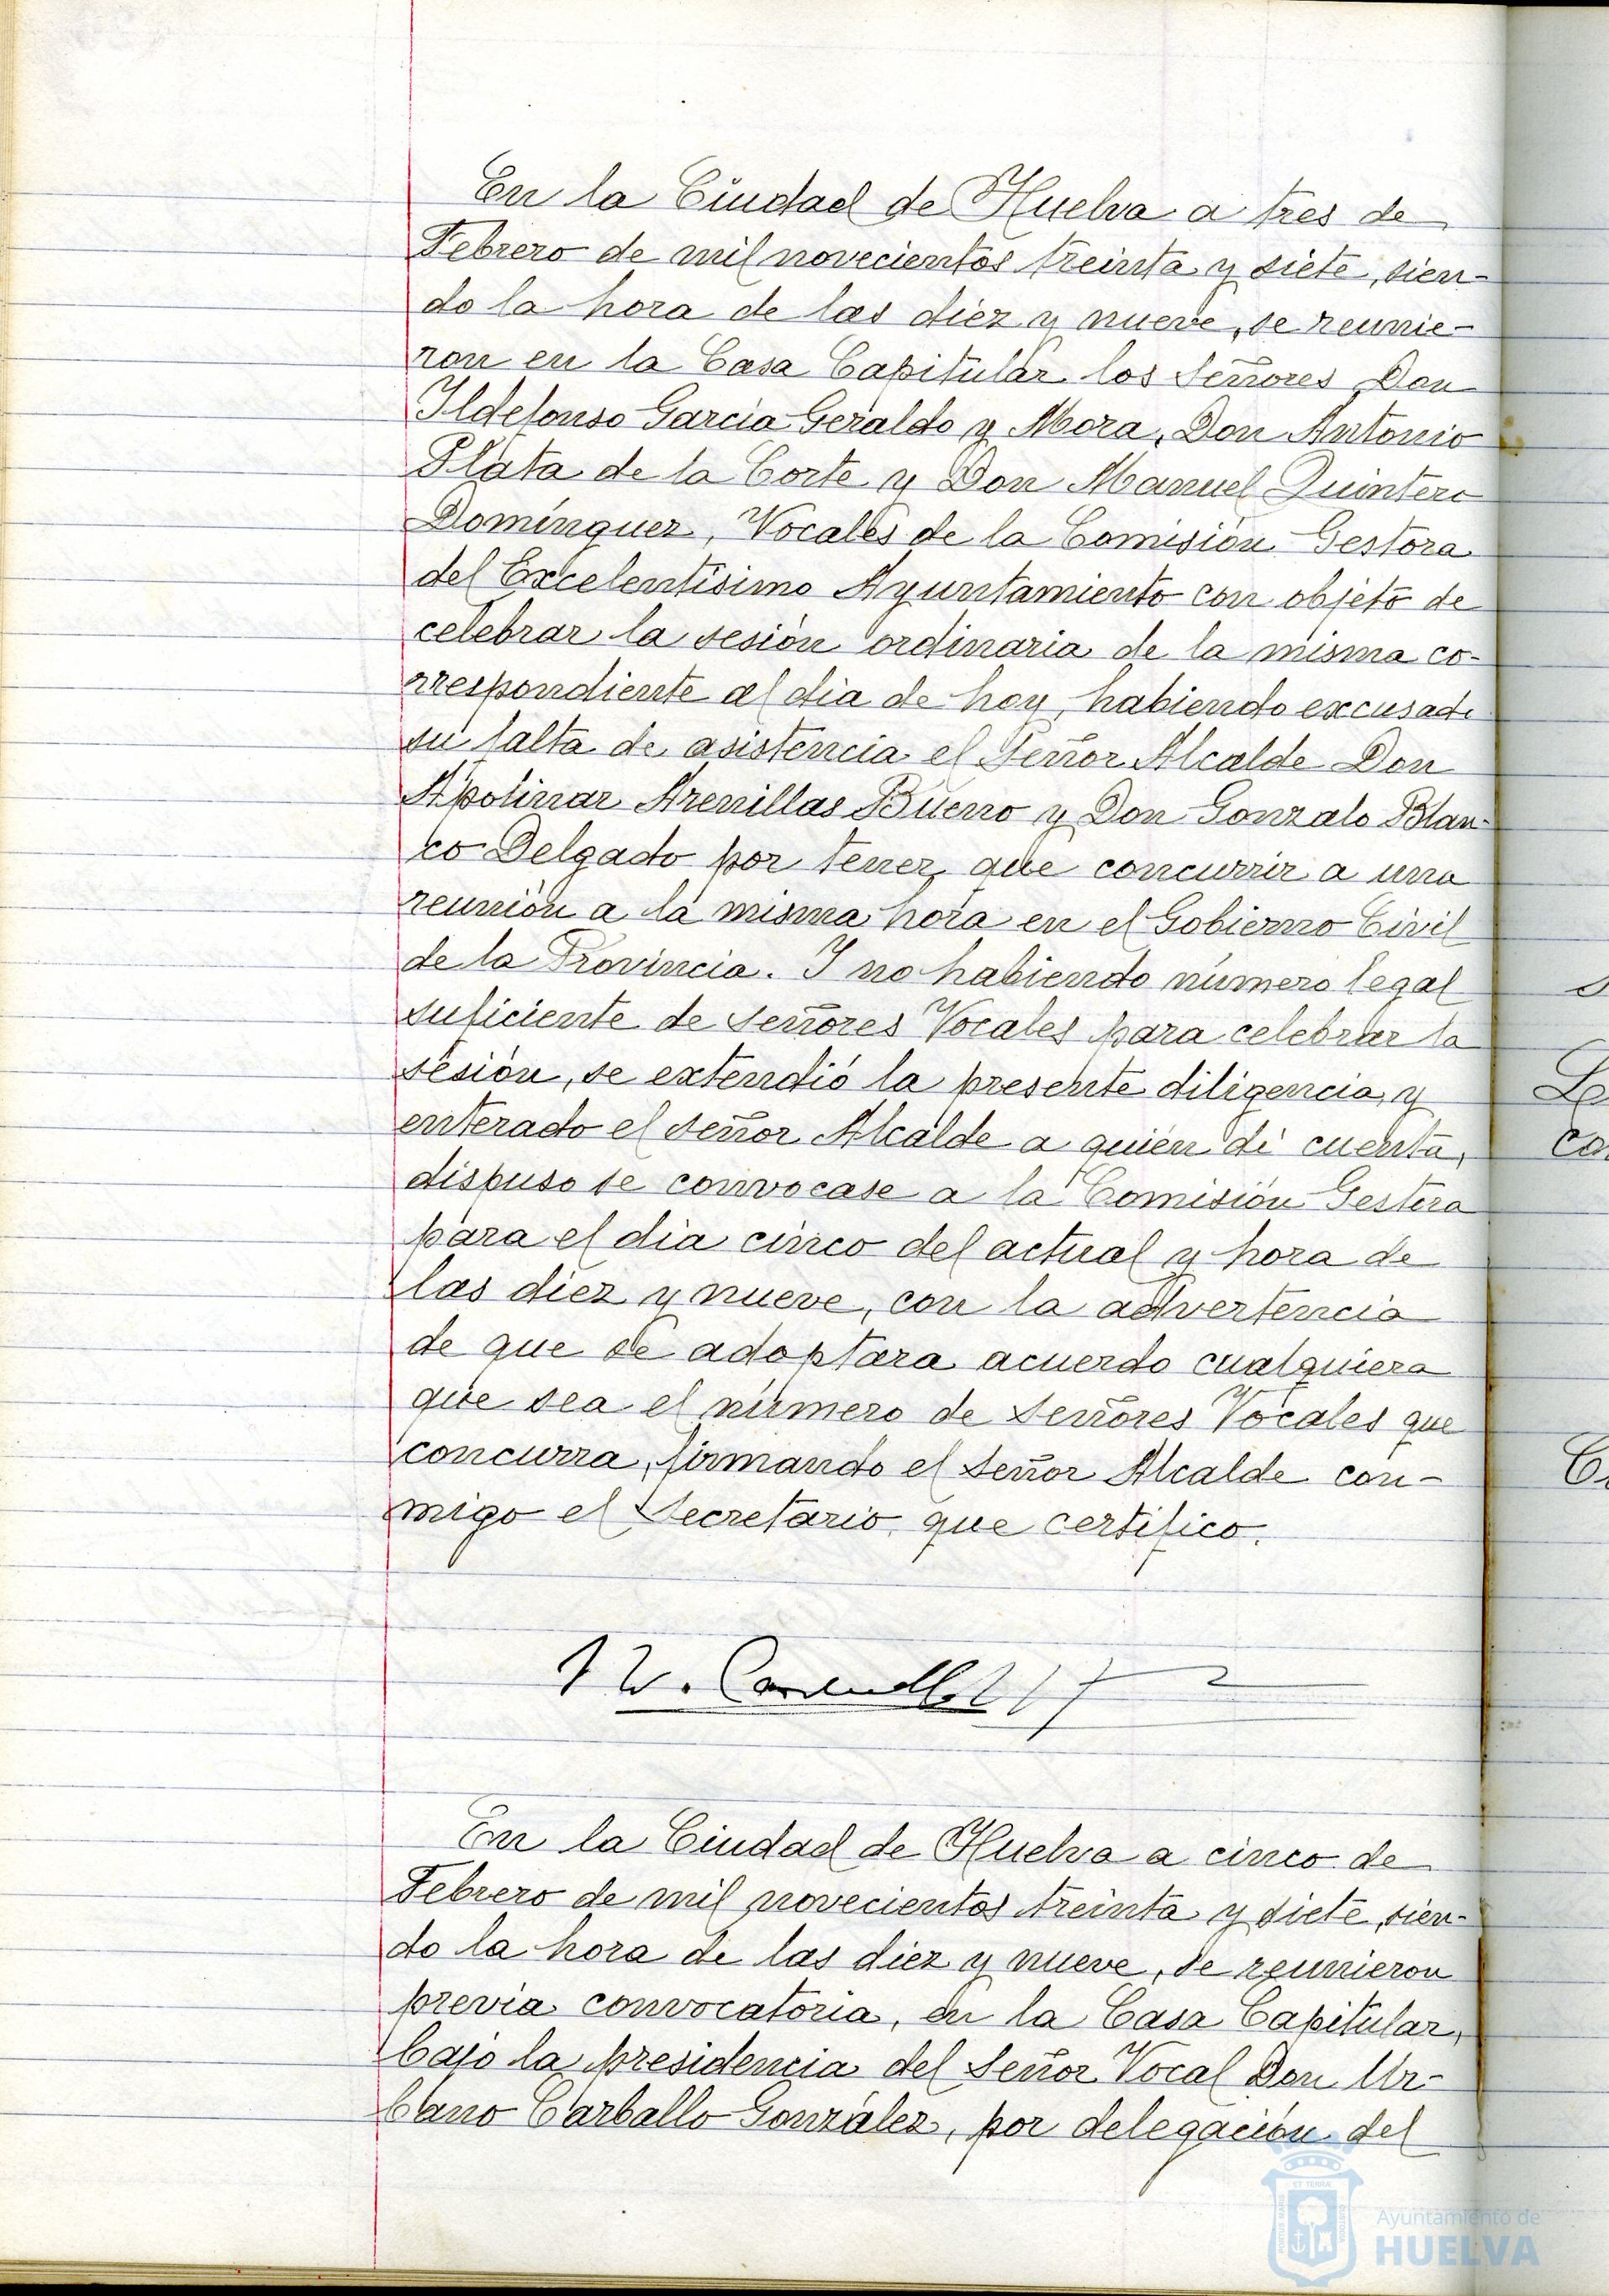 En la Ciudad de Huelva a tres de
Febrero de mil novecientos treinta y siete, sien-
do la hora de las diez y nueve, se reunie-
ron en la Casa Capitular los Señores Don
Ildefonso García Geraldo y Mora, Don Antonio
Plata de la Corte y Don Manuel Quintero
Domínguez, Vocales de la Comisión Gestora
del Excelentísimo Ayuntamiento con objeto de
celebrar la sesión ordinaria de la misma co-
rrespondiente al día de hoy, habiendo excusado
su falta de asistencia el Señor Alcalde Don
Apolinar Arenillas Bueno y Don Gonzalo Blan-
co Delgado por tener que concurrir a una
reunión a la misma hora en el Gobierno Civil
de la Provincia. Y no habiendo número legal
suficiente de señores Vocales para celebrar la
sesión, se extendió la presente diligencia, y
enterado el señor Alcalde a quién dí cuenta,
dispuso se convocase a la Comisión Gestora
para el día cinco del actual y hora de
las diez y nueve, con la advertencia
de que se adoptara acuerdo cualquiera
que sea el número de Señores Vocales que
concurra, firmando el Señor Alcalde con-
migo el Secretario, que certifico.
En la Ciudad de Huelva a cinco de
Febrero de mil novecientos treinta y siete, sien-
do la hora de las diez y nueve, se reunieron
previa convocatoria, en la Casa Capitular,
bajo la presidencia del Señor Vocal Don Ur-
bano Carballo González, por delegación del
Ayuntamiento de
HUELVA